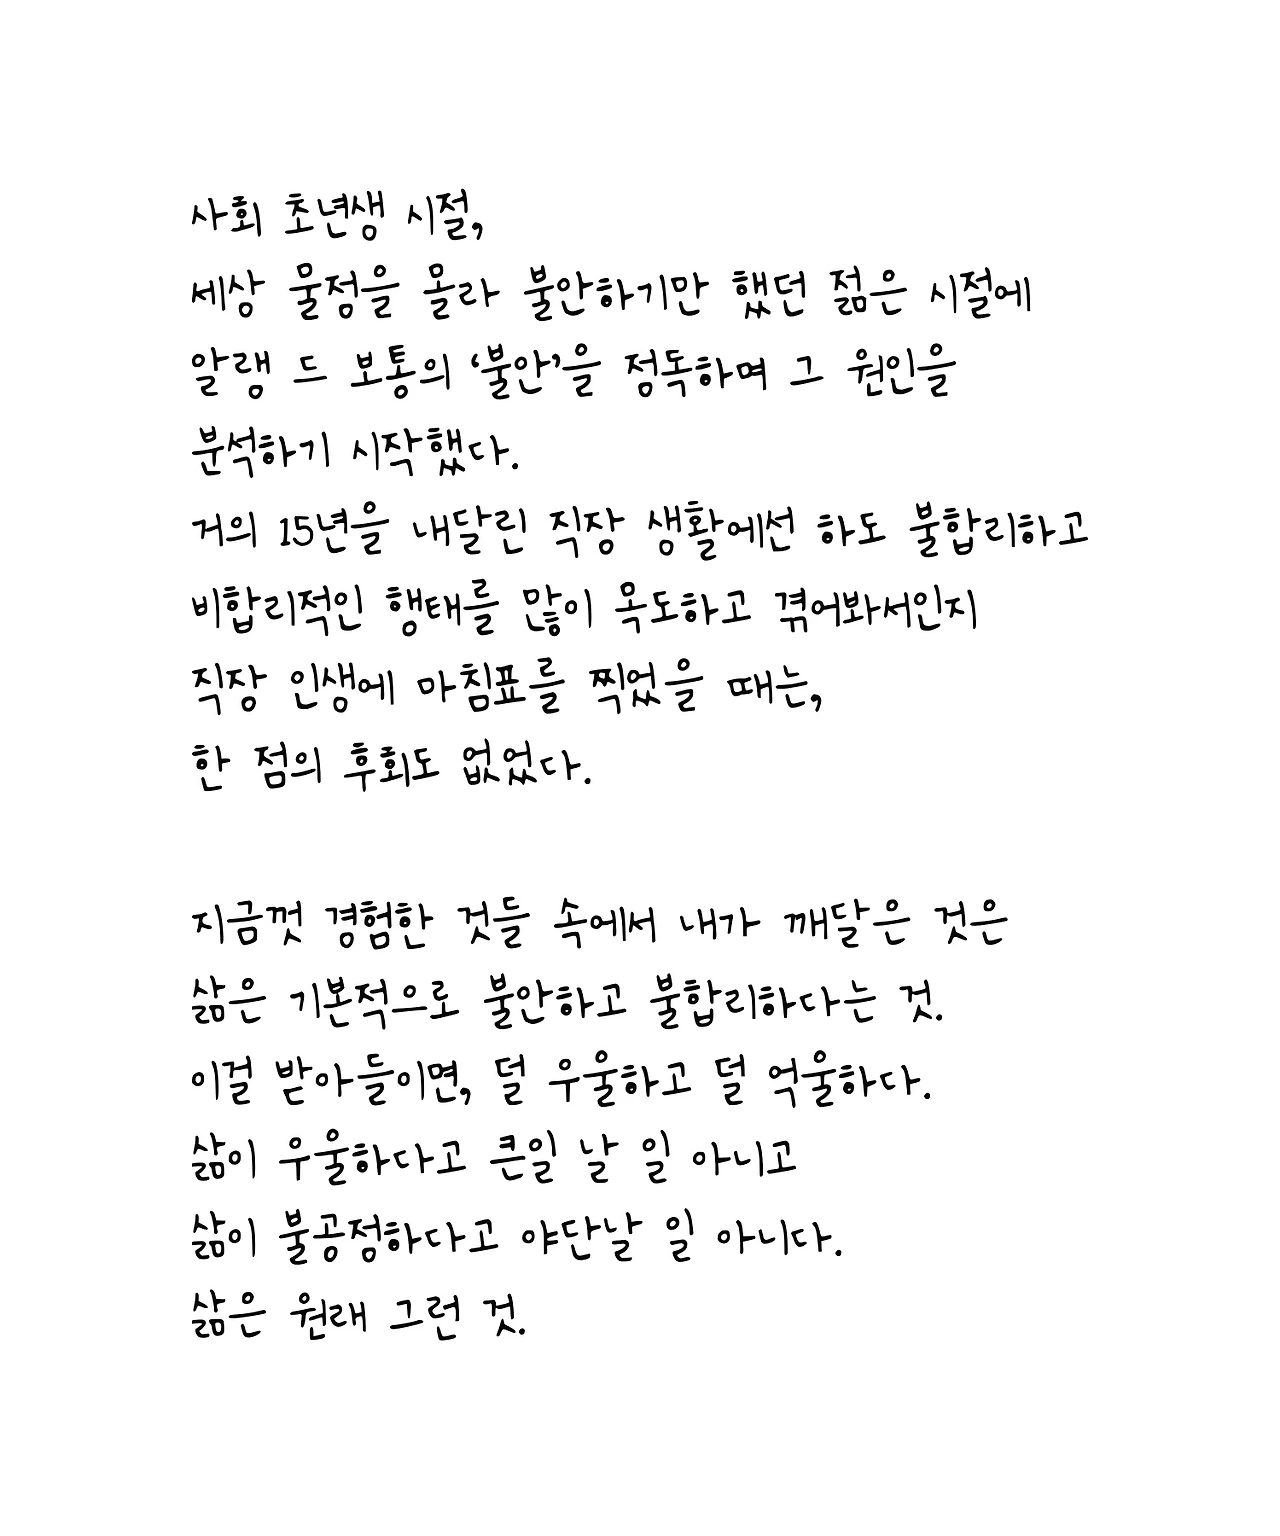 사회 초년생 시절,
세상 물정을 몰라 불안하기만 했던 젊은 시절에
알랭 드 보통의 ‘불안’을 정독하며 그 원인을
분석하기 시작했다.
거의 15년을 내달린 직장 생활에선 하도 불합리하고
비합리적인 행태를 많이 목도하고 겪어봐서인지
직장 인생에 마침표를 찍었을 때는,
한 점의 후회도 없었다.
지금껏 경험한 것들 속에서 내가 깨달은 것은
삶은 기본적으로 불안하고 불합리하다는 것.
이걸 받아들이면, 덜 우울하고 덜 억울하다.
삶이 우울하다고 큰일 날 일 아니고
삶이 불공정하다고 야단날 일 아니다.
삶은 원래 그런 것.